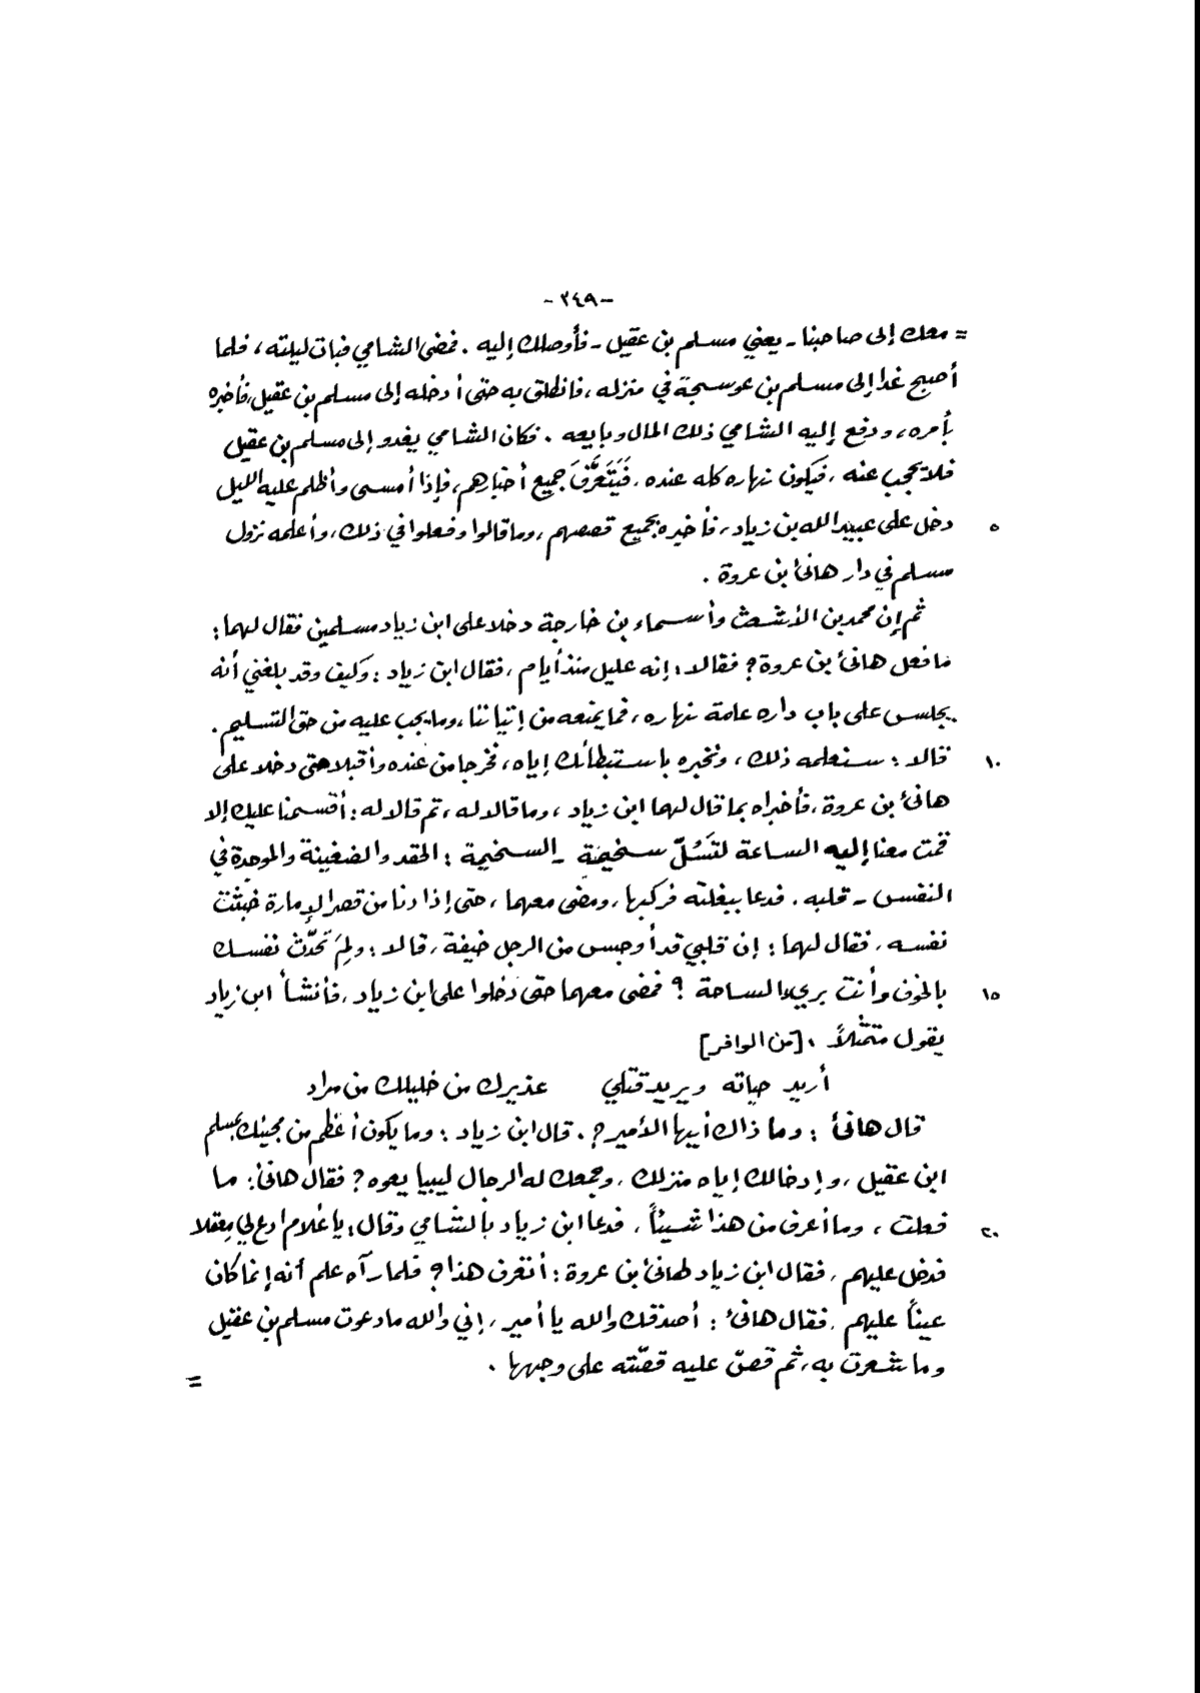 -٣٤٩-
= معك إلى صاحبنا - يعني مسلم بن عقيل - فأوصلك إليه . فمضى الشامي فبات ليلته ، فلما
أصبح غدا إلى مسلم بن عوسجة في منزله ، فانطلق به حتى أدخله إلى مسلم بن عقيل ، فأخبره
بأمره ، ودفع إليه الشامي ذلك المال وبايعه . فكان الشامي يغدو إلى مسلم بن عقيل
فلا يحجب عنه ، فيكون نهاره كله عنده ، فَيَتَعَرَّفَ جميع أخبارهم ، فإذا أمسى وأظلم عليه الليل
دخل على عبيد الله بن زياد ، فأخبره بجميع قصصهم ، وما قالوا وفعلوا في ذلك ، وأعلمه نزول ٥
مسلم في دار هانئ بن عروة .
ثم إن محمد بن الأشعث وأسماء بن خارجة دخلا على ابن زياد مسلمين فقال لهما :
ما فعل هانئ بن عروة ؟ فقالا : إنه عليل منذ أيام ، فقال ابن زياد : وكيف وقد بلغني أنه
يجلس على باب داره عامة نهاره ، فما يمنعه من إتياننا ، وما يجب عليه من حق التسليم .
قالا : سنعلمه ذلك ، ونخبره باستبطائك إياه ، فخرجا من عنده وأقبلا حتى دخلا على ١٠
هانئ بن عروة ، فأخبراه بما قال لهما ابن زياد ، وما قالا له ، ثم قالا له : أقسمنا عليك إلا
قمت معنا إليه الساعة لتَسُلّ سخيمة - السخيمة : الحقد والضغينة والموجدة في
النفس - قلبه . فدعا ببغلته فركبها ، ومضى معهما ، حتى إذا دنا من قصر الإمارة خبثت
نفسه ، فقال لهما : إن قلبي قد أوجس من الرجل خيفة ، قالا : ولِمَ تحدّث نفسك
بالخوف وأنت بريء الساحة ؟ فمضى معهما حتى دخلوا على ابن زياد ، فأنشأ ابن زياد ١٥
يقول متمثلاً : [من الوافر]
أريد حياته ويريد قتلي عذيرك من خليلك من مراد
قال هانئ : وما ذاك أيها الأمير ؟ . قال ابن زياد : وما يكون أعظم من مجيئك بمسلم
ابن عقيل ، وإدخالك إياه منزلك ، وجمعك له الرجال ليبايعوه ؟ فقال هانئ : ما
فعلت ، وما أعرف من هذا شيئاً ، فدعا ابن زياد بالشامي وقال : يا غلام ادع لي معقلا ٢٠
فدخل عليهم ، فقال ابن زياد لهانئ بن عروة : أتعرف هذا ؟ فلما رآه علم أنه إنما كان
عيناً عليهم . فقال هانئ : أصدقك والله يا أمير ، إني والله ما دعوت مسلم بن عقيل
وما شعرت به ، ثم قصّ عليه قصّته على وجهها .
=